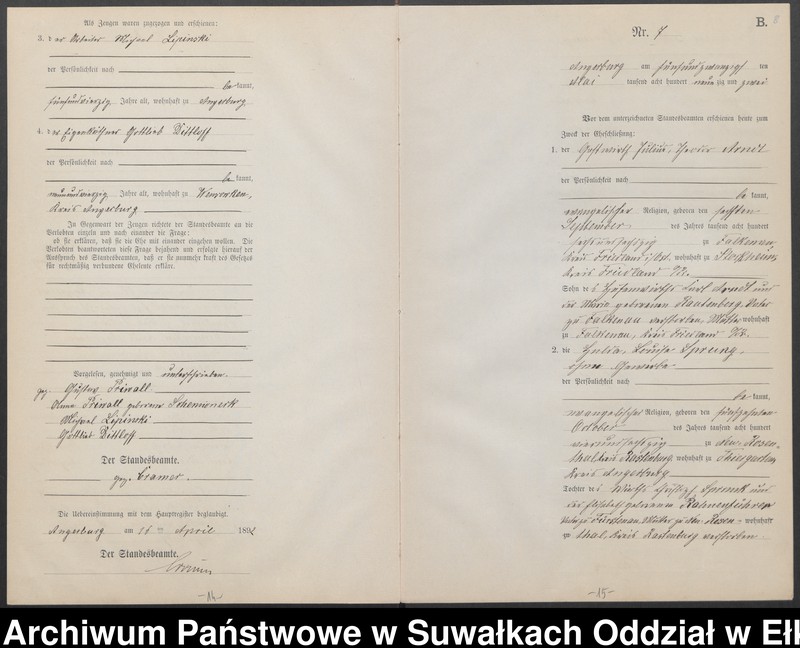 Als Zeugen waren zugezogen und erschienen:
3. der Arbeiter Michael Lipinski
der Persönlichkeit nach
be kannt,
fünfundvierzig Jahre alt, wohnhaft zu Angerburg
4. der Eigenkäthner Gottlieb Dittloff
der Persönlichkeit nach
be kannt,
neunundvierzig Jahre alt, wohnhaft zu
Kreis Angerburg
In Gegenwart der Zeugen richtete der Standesbeamte an die
Verlobten einzeln und nach einander die Frage:
ob sie erklären, daß sie die Ehe mit einander eingehen wollen. Die
Verlobten beantworteten diese Frage bejahend und erfolgte hierauf der
Ausspruch des Standesbeamten, daß er sie nunmehr kraft des Gesetzes
für rechtmäßig verbundene Eheleute erkläre.
Vorgelesen, genehmigt und unterschrieben
gez. Gustav Priwall
Anna Priwall geborene
Michael Lipinski
Gottlieb Dittloff
Der Standesbeamte.
gez. Cramer.
Die Uebereinstimmung mit dem Hauptregister beglaubigt.
Angerburg am 11 ten April 1892
Der Standesbeamte.
Cramer
-14-
B.
8
Nr. 7
Angerburg am fünfundzwanzigsten ten
Mai tausend acht hundert neun zig und zwei
Vor dem unterzeichneten Standesbeamten erschienen heute zum
Zweck der Eheschließung:
1. der Gastwirth Julius, Theodor Arndt
der Persönlichkeit nach
be kannt,
evangelischer Religion, geboren den sechsten
September des Jahres tausend acht hundert
sechsundsechszig zu Falkenau,
Kreis Friedland wohnhaft zu Stockheim,
Kreis Friedland
Sohn des Hofwirths Carl Arndt und
der Marie geborenen Rautenberg, Vater
zu Falkenau verstorben, Mutter wohnhaft
zu Falkenau, Kreis Friedland
2. die Julia, Louise Sprung,
ohne Gewerbe
der Persönlichkeit nach
be kannt,
evangelischer Religion, geboren den fünfzehnten
October des Jahres tausend acht hundert
vierundsechszig zu Neu-Rosen-
thal, Kreis Rastenburg wohnhaft zu Thiergarten,
Kreis Angerburg
Tochter des Wirths und
der geborenen
Vater zu Fürstenau, Mutter zu Neu-Rosen- wohnhaft
zu thal, Kreis Rastenburg verstorben.
-15-
Archiwum Państwowe w Suwałkach Oddział w Ełk